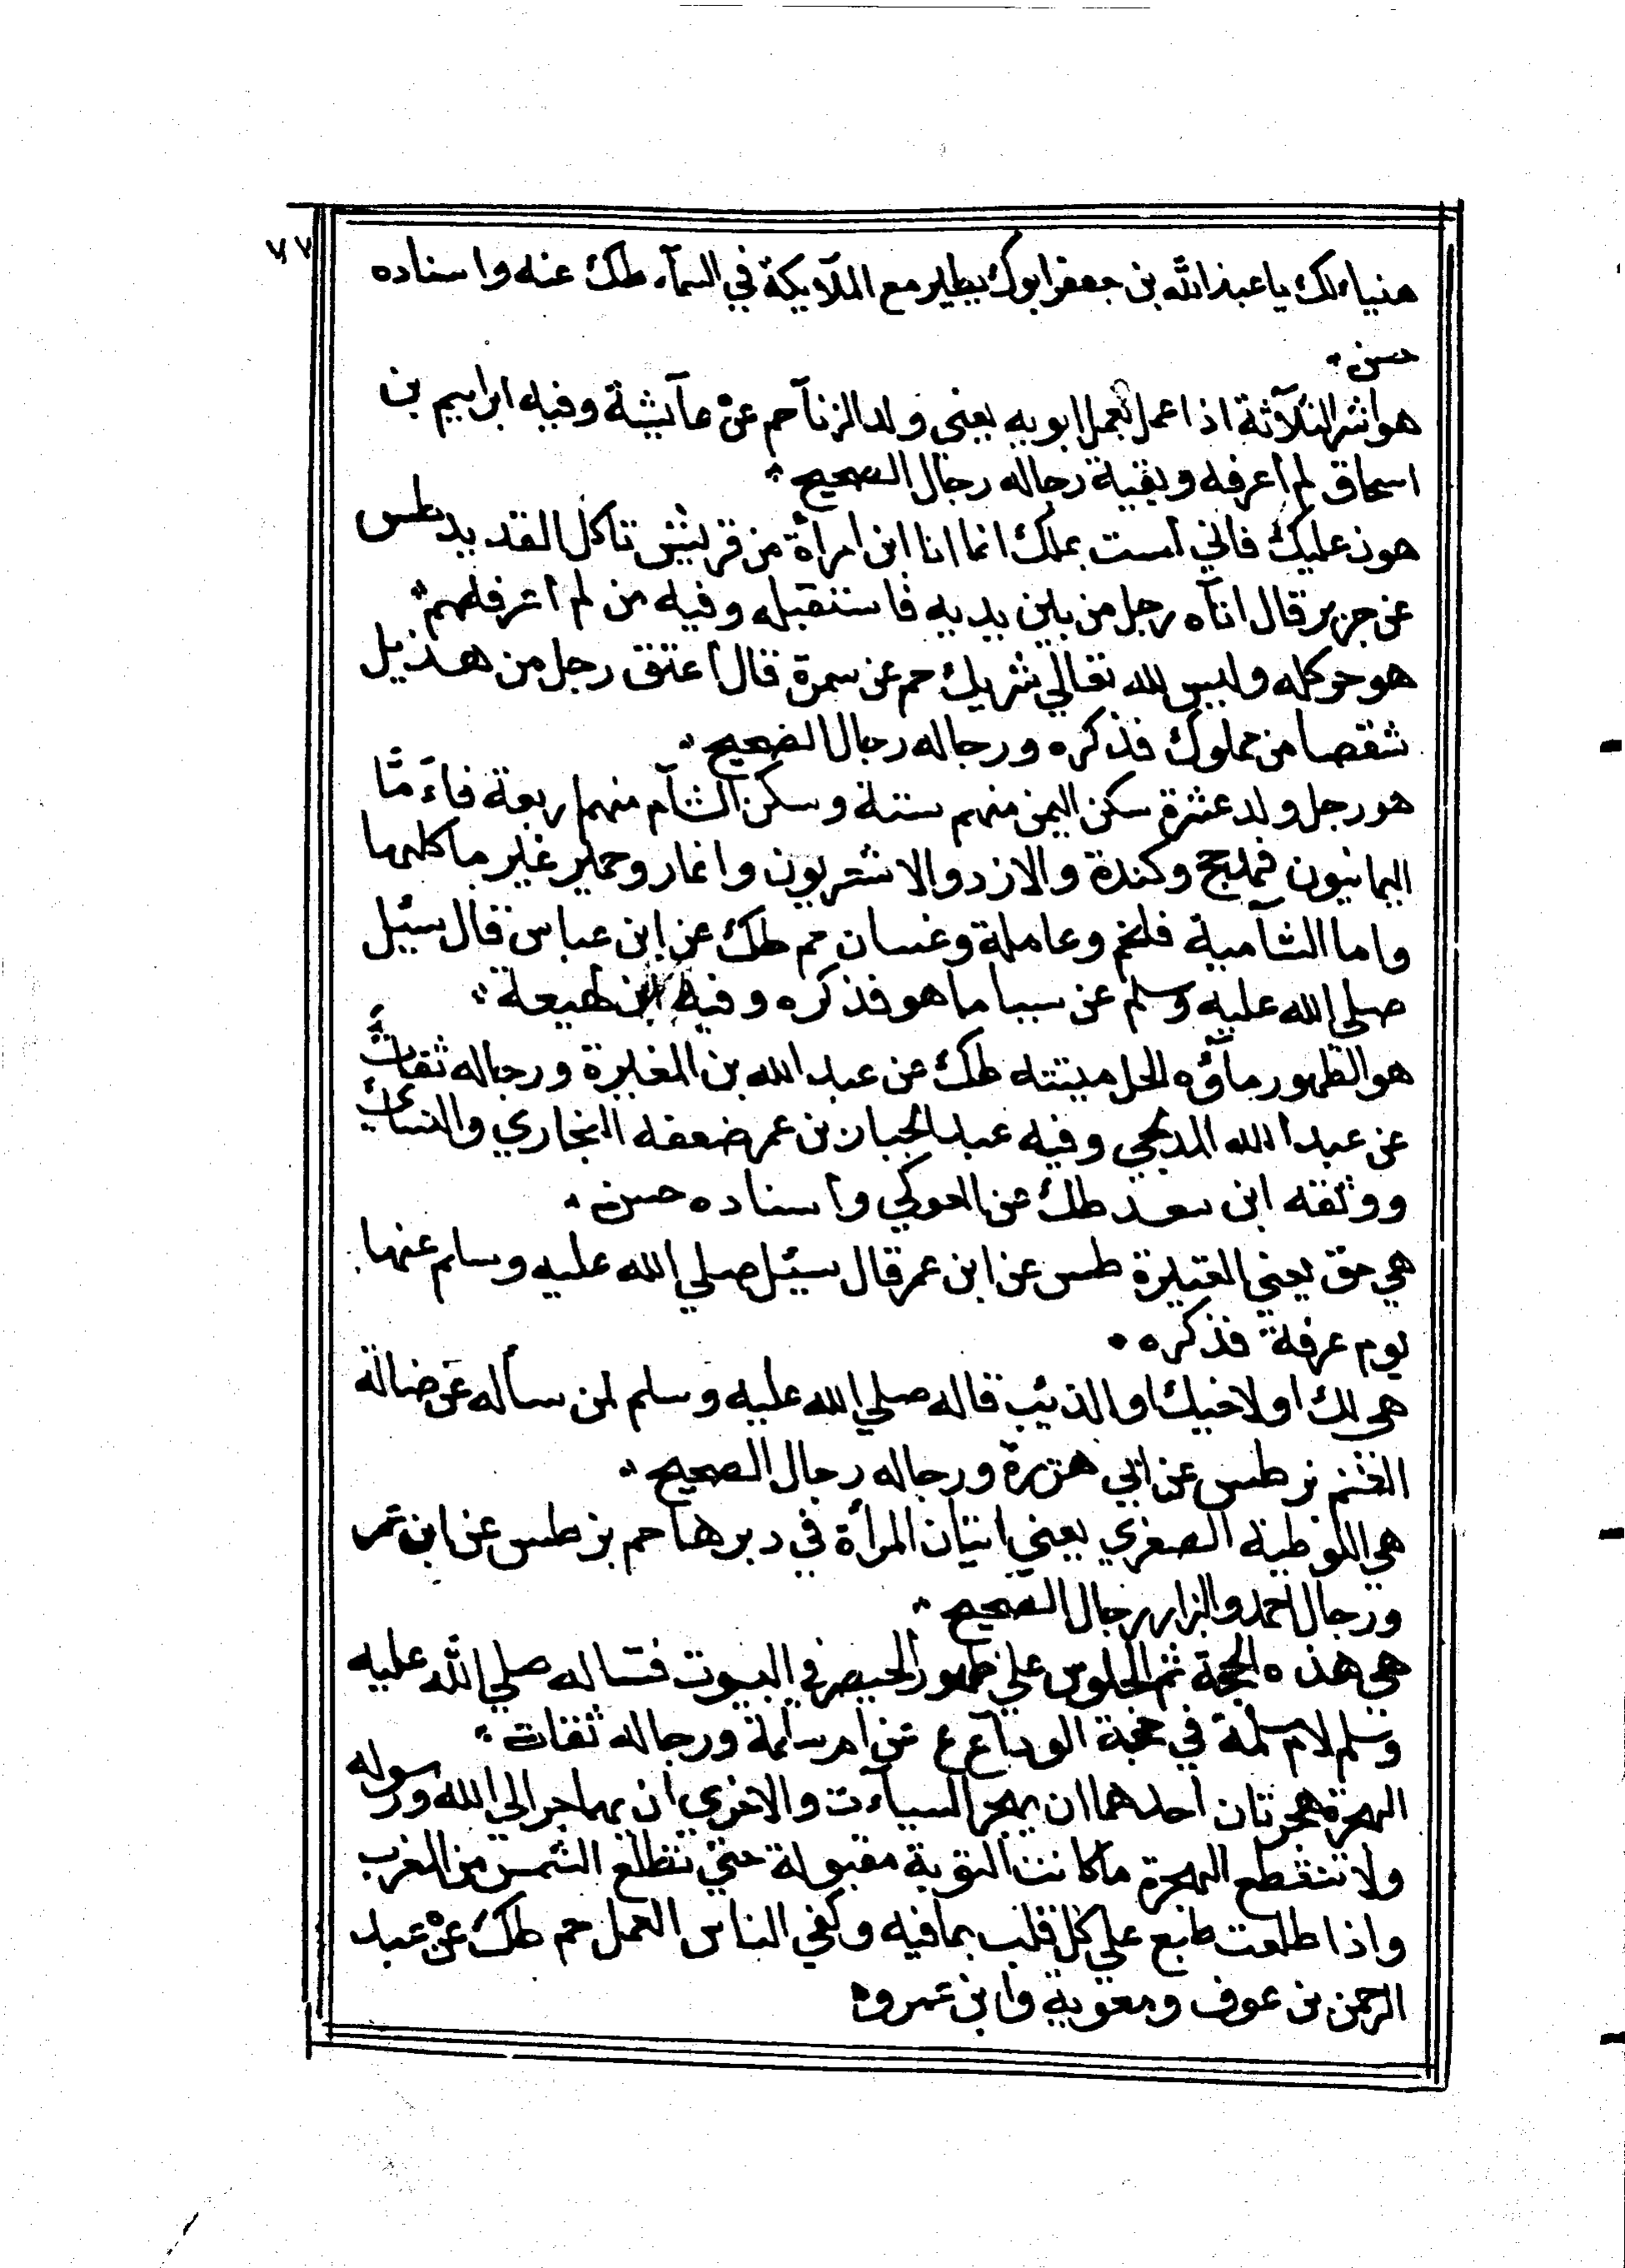 ٧٧
هنياء لك يا عبد الله بن جعفر ابوك يطير مع الملآيكة في السمآء طك عنه واسناده
حسن
هو اشر الثلآثة اذا عمل بعمل ابويه يعني ولد الزنآ حم عن عآيشة وفيه ابراهيم بن
اسحاق لم اعرفه وبقية رجاله رجال الصحيح
هون عليك فاني لست بملك انما انا ابن امرأة من قريش تاكل القديد طس
عن جرير قال اتآه رجل من بين يديه فاستقبله وفيه من لم اعرفهم
هو حر كله وليس لله تعالي شريك حم عن سمرة قال اعتق رجل من هذيل
شقصا من مملوك فذكره ورجاله رجال الصحيح
هو رجل ولد عشرة سكن اليمن منهم ستة وسكن الشآم منهم اربعة فاءمّا
اليمانيون فمذحج وكندة والازد والاشعريون وانمار وحمير غير ما كلها
واما الشآمية فلخم وعاملة وغسان حم طك عن ابن عباس قال سئيل
صلي الله عليه وسلم عن سبا ما هو فذكره وفيه ابن لهيعة
هو الطهور مآؤه الحل ميتته طك عن عبد الله بن المغيرة ورجاله ثقات
عن عبد الله المدلجي وفيه عبد الجبار بن عمر ضعفه البخاري والنسائي
ووثقه ابن سعد طك عن العركي واسناده حسن
هي حق يعني العتيرة طس عن ابن عمر قال سئيل صلي الله عليه وسلم عنها
يوم عرفة فذكره
هي لك او لاخيك او الذئيب قاله صلي الله عليه وسلم لمن سأله عن ضالة
الغنم بز طس عن ابي هريرة ورجاله رجال الصحيح
هي اللوطية الصغري يعني اتيان المرأة في دبرها حم بز طس عن ابن عمر
ورجال احمد والبزار رجال الصحيح
هي هذه الحجة ثم الجلوس علي ظهور الحصر في البيوت قاله صلي الله عليه
وسلم لام سلمة في حجة الوداع ع عن ام سلمة ورجاله ثقات
الهجرة هجرتان احدهما ان يهجر السياءت والاخري ان يهاجر الي الله ورسوله
ولا تنقطع الهجرة ما كانت التوبة مقبولة حتي تطلع الشمس من المغرب
واذا طلعت طبع علي كل قلب بما فيه وكفي الناس العمل حم طك عن عبد
الرحمن بن عوف ومعوية وابن عمرو